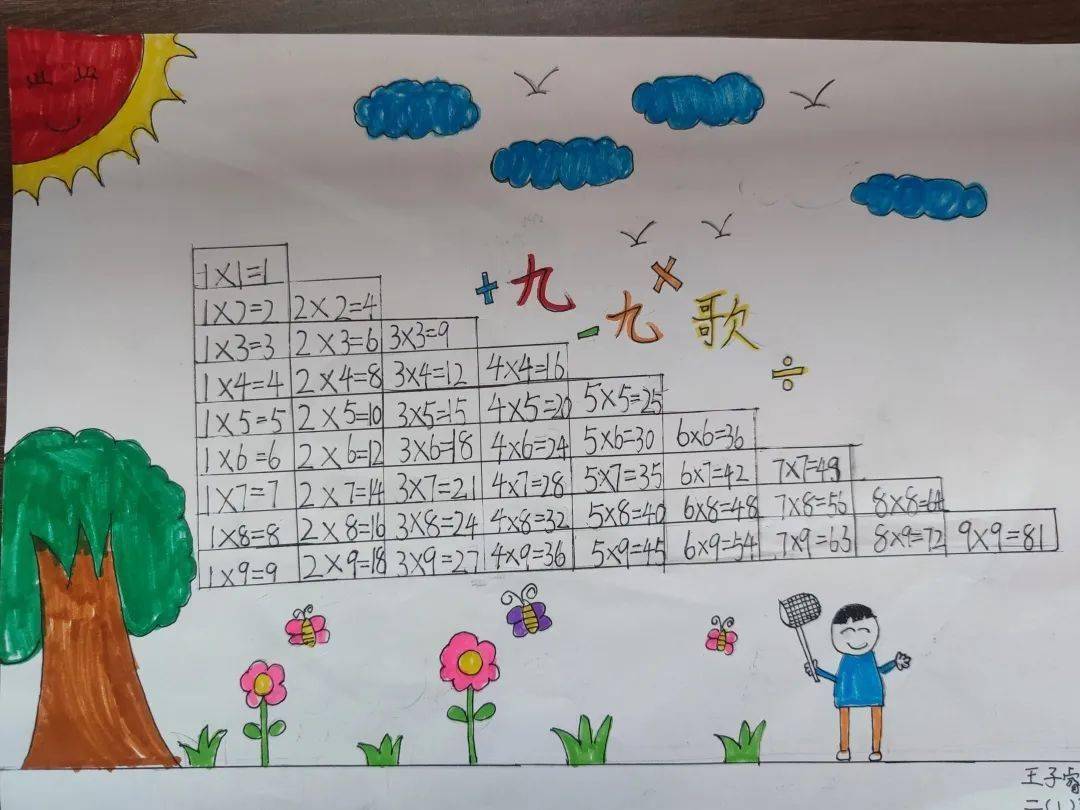 + 九 ×
- 九 歌
÷
1×1=1
1×2=2 2×2=4
1×3=3 2×3=6 3×3=9
1×4=4 2×4=8 3×4=12 4×4=16
1×5=5 2×5=10 3×5=15 4×5=20 5×5=25
1×6=6 2×6=12 3×6=18 4×6=24 5×6=30 6×6=36
1×7=7 2×7=14 3×7=21 4×7=28 5×7=35 6×7=42 7×7=49
1×8=8 2×8=16 3×8=24 4×8=32 5×8=40 6×8=48 7×8=56 8×8=64
1×9=9 2×9=18 3×9=27 4×9=36 5×9=45 6×9=54 7×9=63 8×9=72 9×9=81
王子睿
二(1)